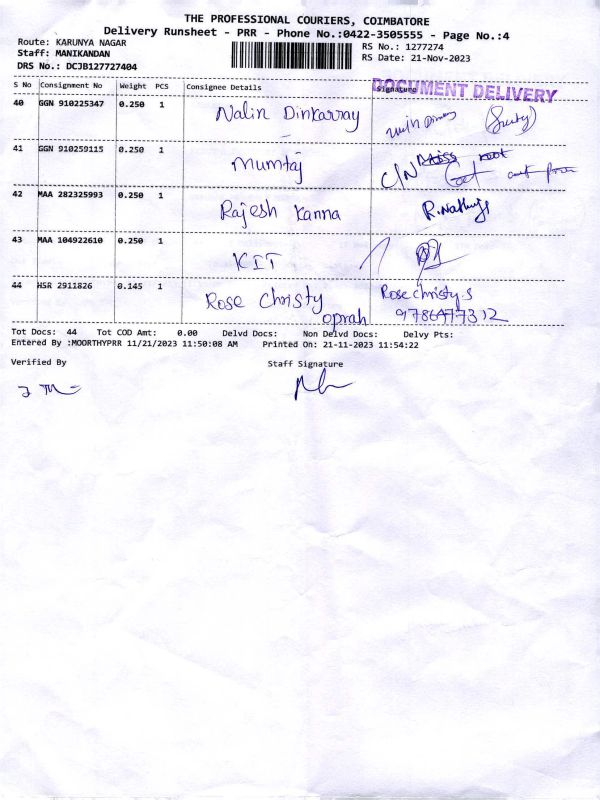 THE PROFESSIONAL COURIERS, COIMBATORE
Delivery Runsheet - PRR - Phone No.:0422-3505555 - Page No.:4
Route: KARUNYA NAGAR
RS No.: 1277274
Staff: MANIKANDAN
RS Date: 21-Nov-2023
DRS No.: DCJB127727404
DOCUMENT DELIVERY
S No Consignment No Weight PCS Consignee Details Signature
40 GGN 910225347 0.250 1 Nalin Dinkarray
41 GGN 910259115 0.250 1 Mumtaj C/N
42 MAA 282325993 0.250 1 Rajesh Kanna
43 MAA 104922610 0.250 1 KIT
44 HSR 2911826 0.145 1 Rose Christy Rose christy.s
oprah 9786477312
Tot Docs: 44 Tot COD Amt: 0.00 Delvd Docs: Non Delvd Docs: Delvy Pts:
Entered By :MOORTHYPRR 11/21/2023 11:50:08 AM Printed On: 21-11-2023 11:54:22
Verified By Staff Signature